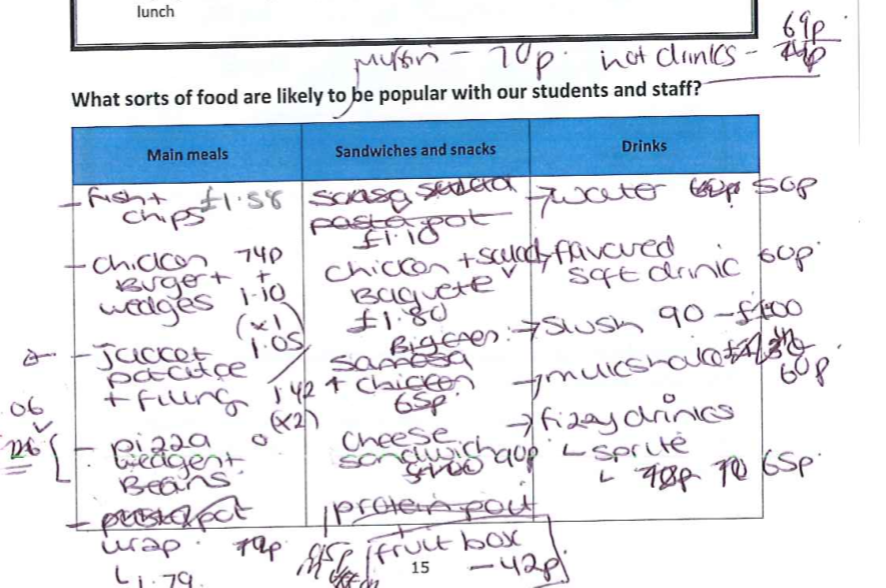 lunch
muffin - 70p. hot drinks - 69p
What sorts of food are likely to be popular with our students and staff?
Main meals
- fish + chips £1.58
- chicken 74p
Burger + +
wedges 1.10
(x1)
- Jacket 1.05
potatoe /
+ filling 1.42
(x2)
06
26
- pizza
wedges +
Beans
- pasta pot
wrap. 79p
↳ 1.79
Sandwiches and snacks
pasta pot
£1.10
chicken + salad
Baguete
£1.80
samosa
+ chicken
65p.
cheese
sandwich 90p
£1.00
protein pout
fruit box
- 42p
Drinks
→ water 50p
→ flavoured
soft drink 60p.
→ slush 90 - £1.00
→ milkshake
60p
→ fizzy drinks
↳ sprite
↳ 70 65p.
15